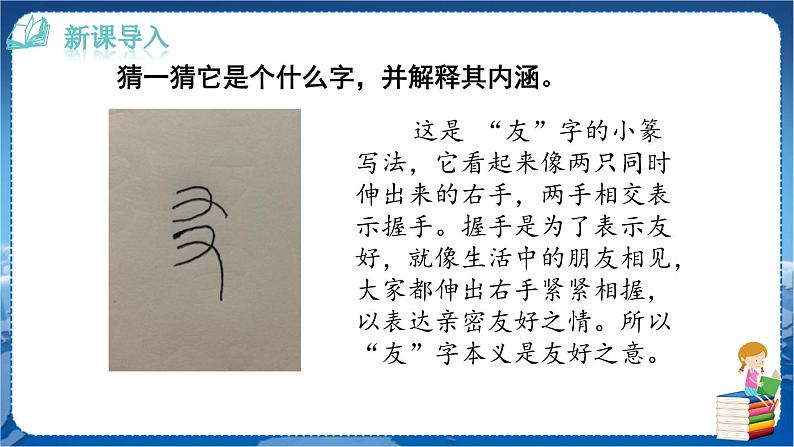 新课导入
猜一猜它是个什么字，并解释其内涵。
这是 “友”字的小篆
写法，它看起来像两只同时
伸出来的右手，两手相交表
示握手。握手是为了表示友
好，就像生活中的朋友相见，
大家都伸出右手紧紧相握，
以表达亲密友好之情。所以
“友”字本义是友好之意。